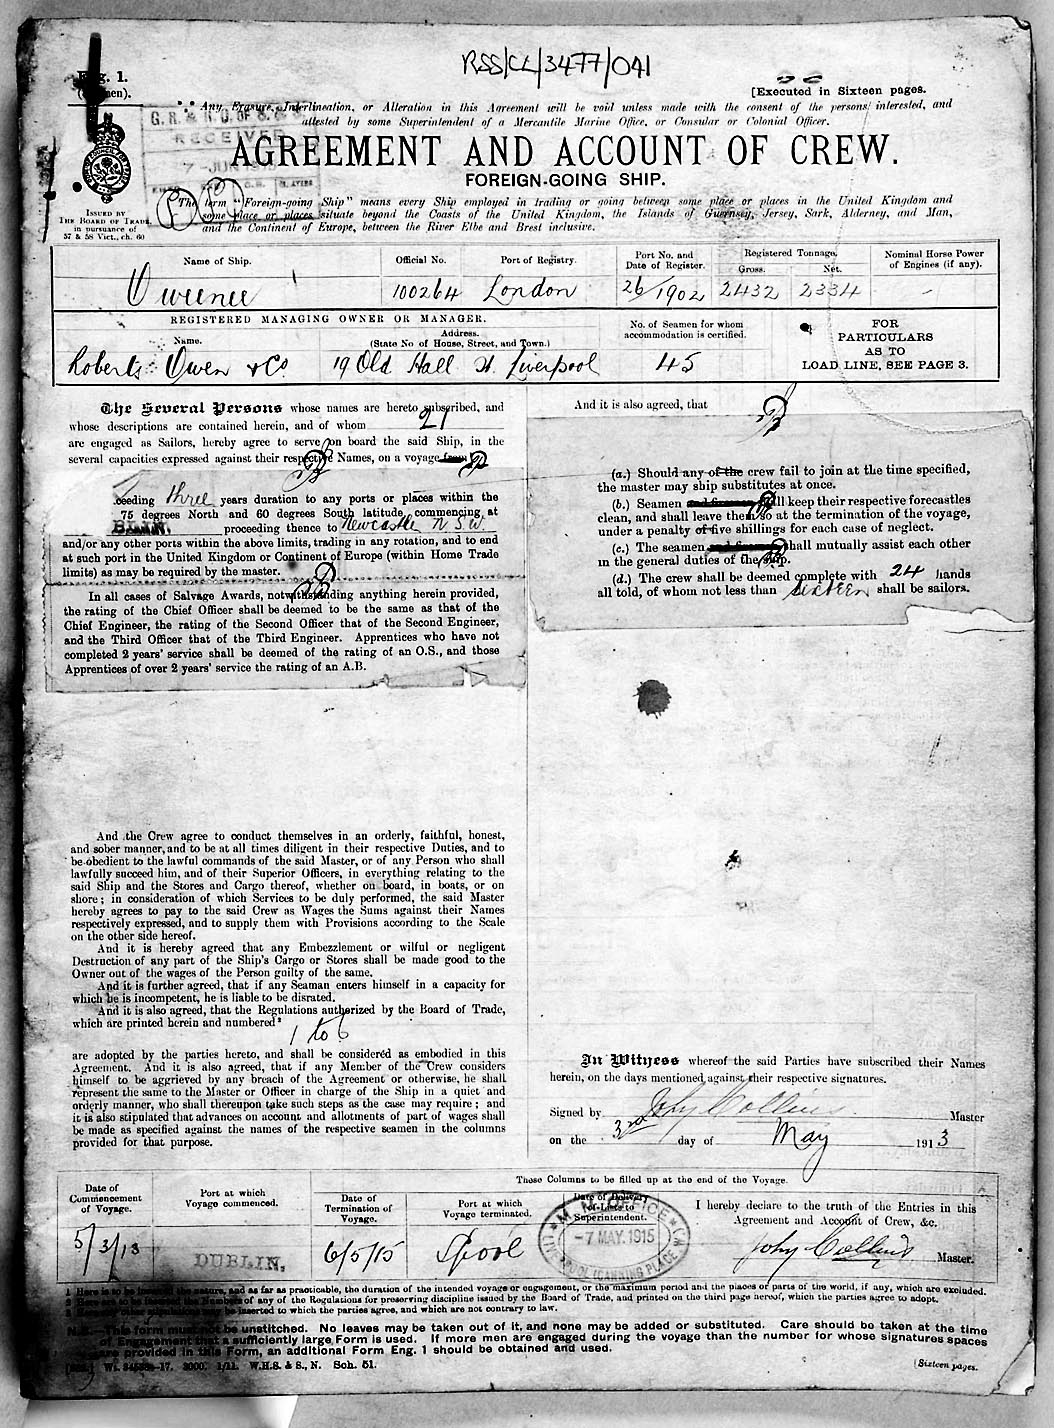 RSS/CL/3477/041
Eng. 1.
[Executed in Sixteen pages.
Any Erasure, Interlineation, or Alteration in this Agreement will be void unless made with the consent of the persons interested, and
attested by some Superintendent of a Mercantile Marine Office, or Consular or Colonial Officer.
G. R. & R. O. OF S. & S.
RECEIVED
7-JUN 1915
AGREEMENT AND ACCOUNT OF CREW.
FOREIGN-GOING SHIP.
ISSUED BY
THE BOARD OF TRADE,
in pursuance of
57 & 58 Vict., ch. 60
The term "Foreign-going Ship" means every Ship employed in trading or going between some place or places in the United Kingdom and
some place or places situate beyond the Coasts of the United Kingdom, the Islands of Guernsey, Jersey, Sark, Alderney, and Man,
and the Continent of Europe, between the River Elbe and Brest inclusive.
Name of Ship.
Official No.
Port of Registry.
Port No. and
Date of Register.
Registered Tonnage.
Gross.
Net.
Nominal Horse Power
of Engines (if any).
Oweenee
100264
London
26/1902
2432
2334
-
REGISTERED MANAGING OWNER OR MANAGER.
Name.
Address.
(State No of House, Street, and Town.)
No. of Seamen for whom
accommodation is certified.
FOR
PARTICULARS
AS TO
LOAD LINE, SEE PAGE 3.
Roberts Owen & Co.
19 Old Hall St. Liverpool
45
The Several Persons whose names are hereto subscribed, and
whose descriptions are contained herein, and of whom 21
are engaged as Sailors, hereby agree to serve on board the said Ship, in the
several capacities expressed against their respective Names, on a voyage from
ceeding three years duration to any ports or places within the
75 degrees North and 60 degrees South latitude, commencing at
BLIN. proceeding thence to Newcastle N S.W.
and/or any other ports within the above limits, trading in any rotation, and to end
at such port in the United Kingdom or Continent of Europe (within Home Trade
limits) as may be required by the master.
In all cases of Salvage Awards, notwithstanding anything herein provided,
the rating of the Chief Officer shall be deemed to be the same as that of the
Chief Engineer, the rating of the Second Officer that of the Second Engineer,
and the Third Officer that of the Third Engineer. Apprentices who have not
completed 2 years' service shall be deemed of the rating of an O.S., and those
Apprentices of over 2 years' service the rating of an A.B.
And the Crew agree to conduct themselves in an orderly, faithful, honest,
and sober manner, and to be at all times diligent in their respective Duties, and to
be obedient to the lawful commands of the said Master, or of any Person who shall
lawfully succeed him, and of their Superior Officers, in everything relating to the
said Ship and the Stores and Cargo thereof, whether on board, in boats, or on
shore; in consideration of which Services to be duly performed, the said Master
hereby agrees to pay to the said Crew as Wages the Sums against their Names
respectively expressed, and to supply them with Provisions according to the Scale
on the other side hereof.
And it is hereby agreed that any Embezzlement or wilful or negligent
Destruction of any part of the Ship's Cargo or Stores shall be made good to the
Owner out of the wages of the Person guilty of the same.
And it is further agreed, that if any Seaman enters himself in a capacity for
which he is incompetent, he is liable to be disrated.
And it is also agreed, that the Regulations authorized by the Board of Trade,
which are printed herein and numbered² 1 to 6
are adopted by the parties hereto, and shall be considered as embodied in this
Agreement. And it is also agreed, that if any Member of the Crew considers
himself to be aggrieved by any breach of the Agreement or otherwise, he shall
represent the same to the Master or Officer in charge of the Ship in a quiet and
orderly manner, who shall thereupon take such steps as the case may require; and
it is also stipulated that advances on account and allotments of part of wages shall
be made as specified against the names of the respective seamen in the columns
provided for that purpose.
And it is also agreed, that
(a.) Should any of the crew fail to join at the time specified,
the master may ship substitutes at once.
(b.) Seamen and firemen shall keep their respective forecastles
clean, and shall leave them so at the termination of the voyage,
under a penalty of five shillings for each case of neglect.
(c.) The seamen and firemen shall mutually assist each other
in the general duties of the ship.
(d.) The crew shall be deemed complete with 24 hands
all told, of whom not less than sixteen shall be sailors.
In Witness whereof the said Parties have subscribed their Names
herein, on the days mentioned against their respective signatures.
Signed by John Collins Master
on the 3rd day of May 1913
Date of
Commencement
of Voyage.
Port at which
Voyage commenced.
These Columns to be filled up at the end of the Voyage.
Date of
Termination of
Voyage.
Port at which
Voyage terminated.
Date of Delivery
of Lists to
Superintendent.
I hereby declare to the truth of the Entries in this
Agreement and Account of Crew, &c.
5/3/13
DUBLIN.
6/5/15
L'pool
M. M. OFFICE
-7 MAY. 1915
John Collins Master.
1 Here is to be inserted the nature, and as far as practicable, the duration of the intended voyage or engagement, or the maximum period and the places or parts of the world, if any, which are excluded.
2 Here are to be inserted the Numbers of any of the Regulations for preserving discipline issued by the Board of Trade, and printed on the third page hereof, which the parties agree to adopt.
be inserted to which the parties agree, and which are not contrary to law.
N.B.—This form must not be unstitched. No leaves may be taken out of it, and none may be added or substituted. Care should be taken at the time
of Engagement that a sufficiently large Form is used. If more men are engaged during the voyage than the number for whose signatures spaces
are provided in this Form, an additional Form Eng. 1 should be obtained and used.
2000. 1/11. W.H.S. & S., N. Sch. 51.
[Sixteen pages.